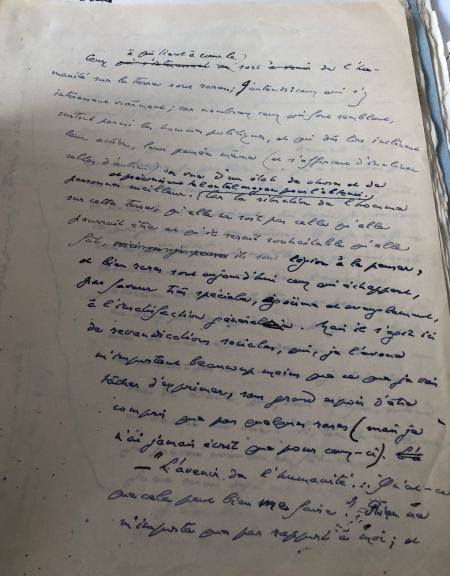 à qui tient à coeur le ?
Ceux qui s'intéressent au sort à venir de l'hu-
manité sur la terre sont rares ; j'entends : ceux qui s'y
intéressent vraiment ; car nombreux ceux qui font semblant,
surtout parmi les hommes politiques, et qui dès lors inclinent
leur action, leur pensée même (et s'efforcent d'incliner
celles d'autrui) en vue d'un état de choses et de
et préconisent le
personnes meilleur. (Car la situation de l'homme
sur cette terre, qu'elle ne soit pas celle qu'elle
pourrait être et qu'il serait souhaitable qu'elle
fût, ils sont légion à le penser,
et bien rares sont aujourd'hui ceux qui échappent,
par faveur très spéciale, égoïsme et aveuglement,
à l'insatisfaction générale. Mais il s'agit ici
de revendications sociales, qui, je l'avoue
m'importent beaucoup moins que ce que je vais
tâcher d'exprimer, sans grand espoir d'être
compris que par quelques rares (mais je
n'ai jamais écrit que pour ceux-ci).
— "L'avenir de l'humanité... Qu'est-ce
que cela peut bien me faire ? Rien ne
m'importe que par rapport à moi ; et